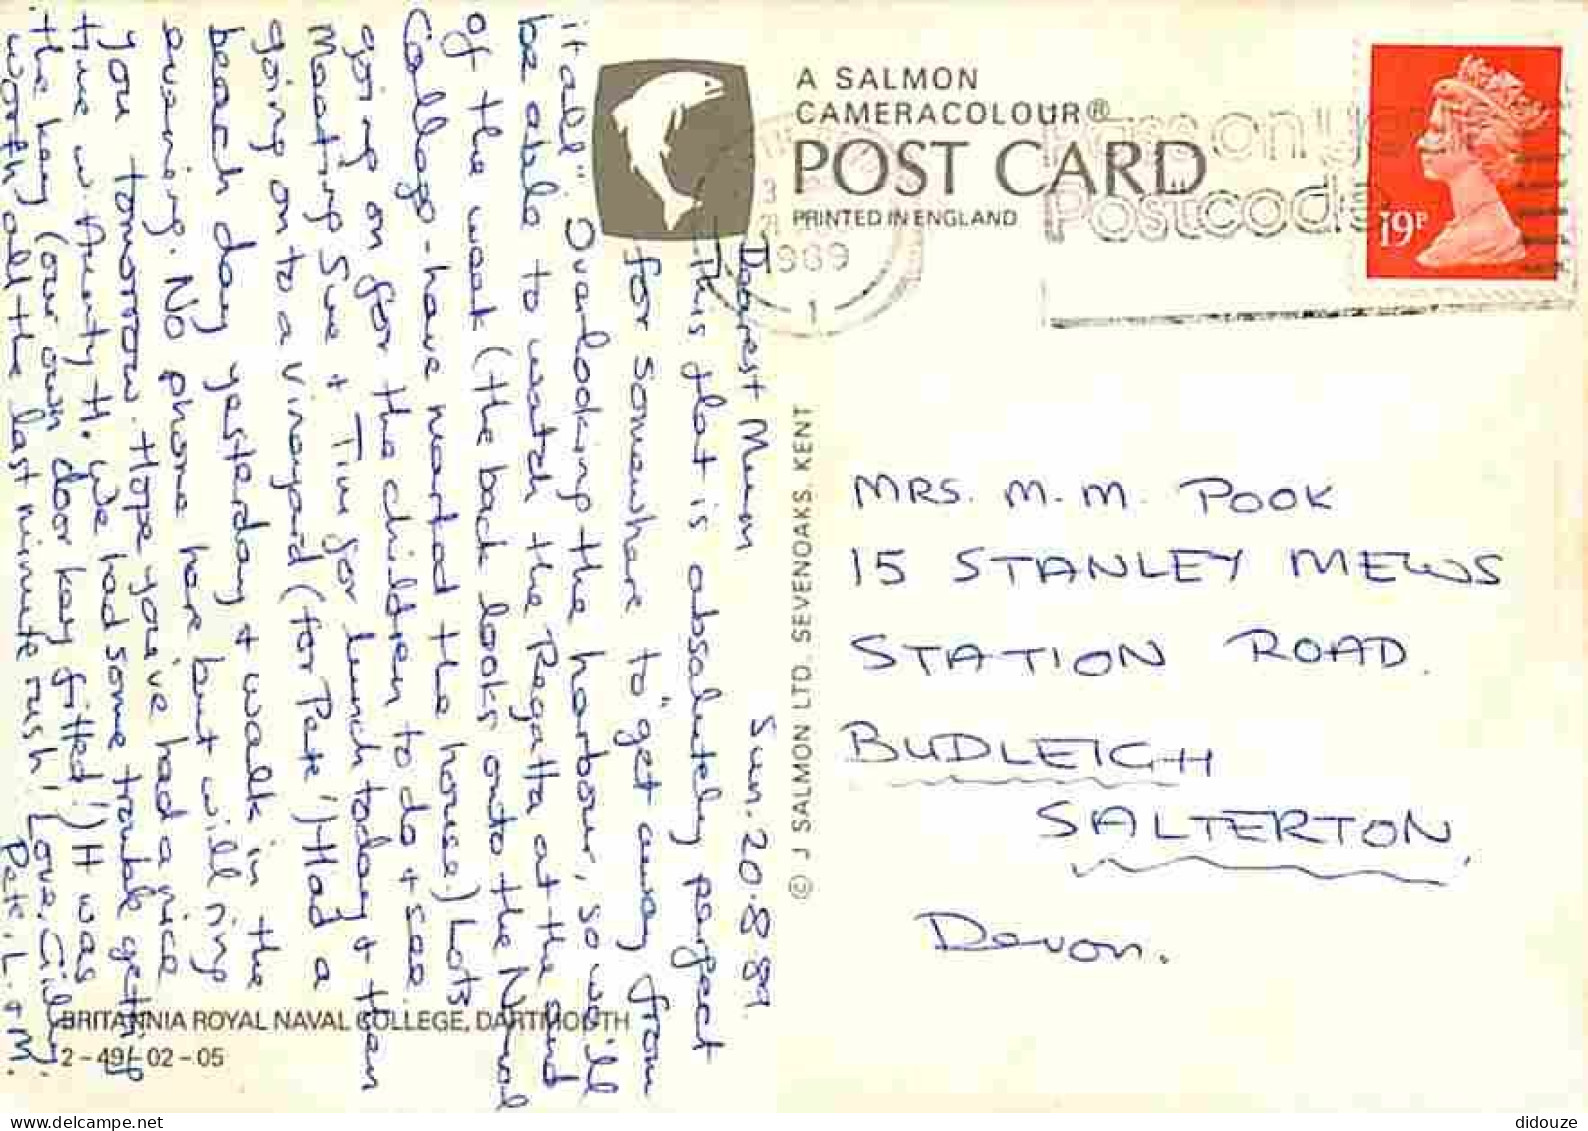 A SALMON
CAMERACOLOUR®
POST CARD
PRINTED IN ENGLAND
Pass on your
Postcode
1989
1
19P
Dearest Mum Sun. 20.8.89.
This flat is absolutely perfect
for somewhere to "get away from
it all" Overlooking the harbour, so we'll
be able to watch the Regatta at the end
of the week (the back looks onto the Naval
College - have marked the house.) Lots
going on for the children to do + see.
Meeting Sue + Tim for lunch today + then
going on to a vineyard (for Pete!) Had a
beach day yesterday + walk in the
evening. No phone here but will ring
you tomorrow. Hope you've had a nice
time w. Aunty H. We had some trouble getting
the key (our own door key fitted!) It was
worth all the last minute rush! Love, Gilly,
Pete, L. + M.
© J SALMON LTD. SEVENOAKS. KENT
MRS. M. M. POOK
15 STANLEY MEWS
STATION ROAD.
BUDLEIGH
SALTERTON,
Devon.
BRITANNIA ROYAL NAVAL COLLEGE, DARTMOUTH
2-49-02-05
didouze